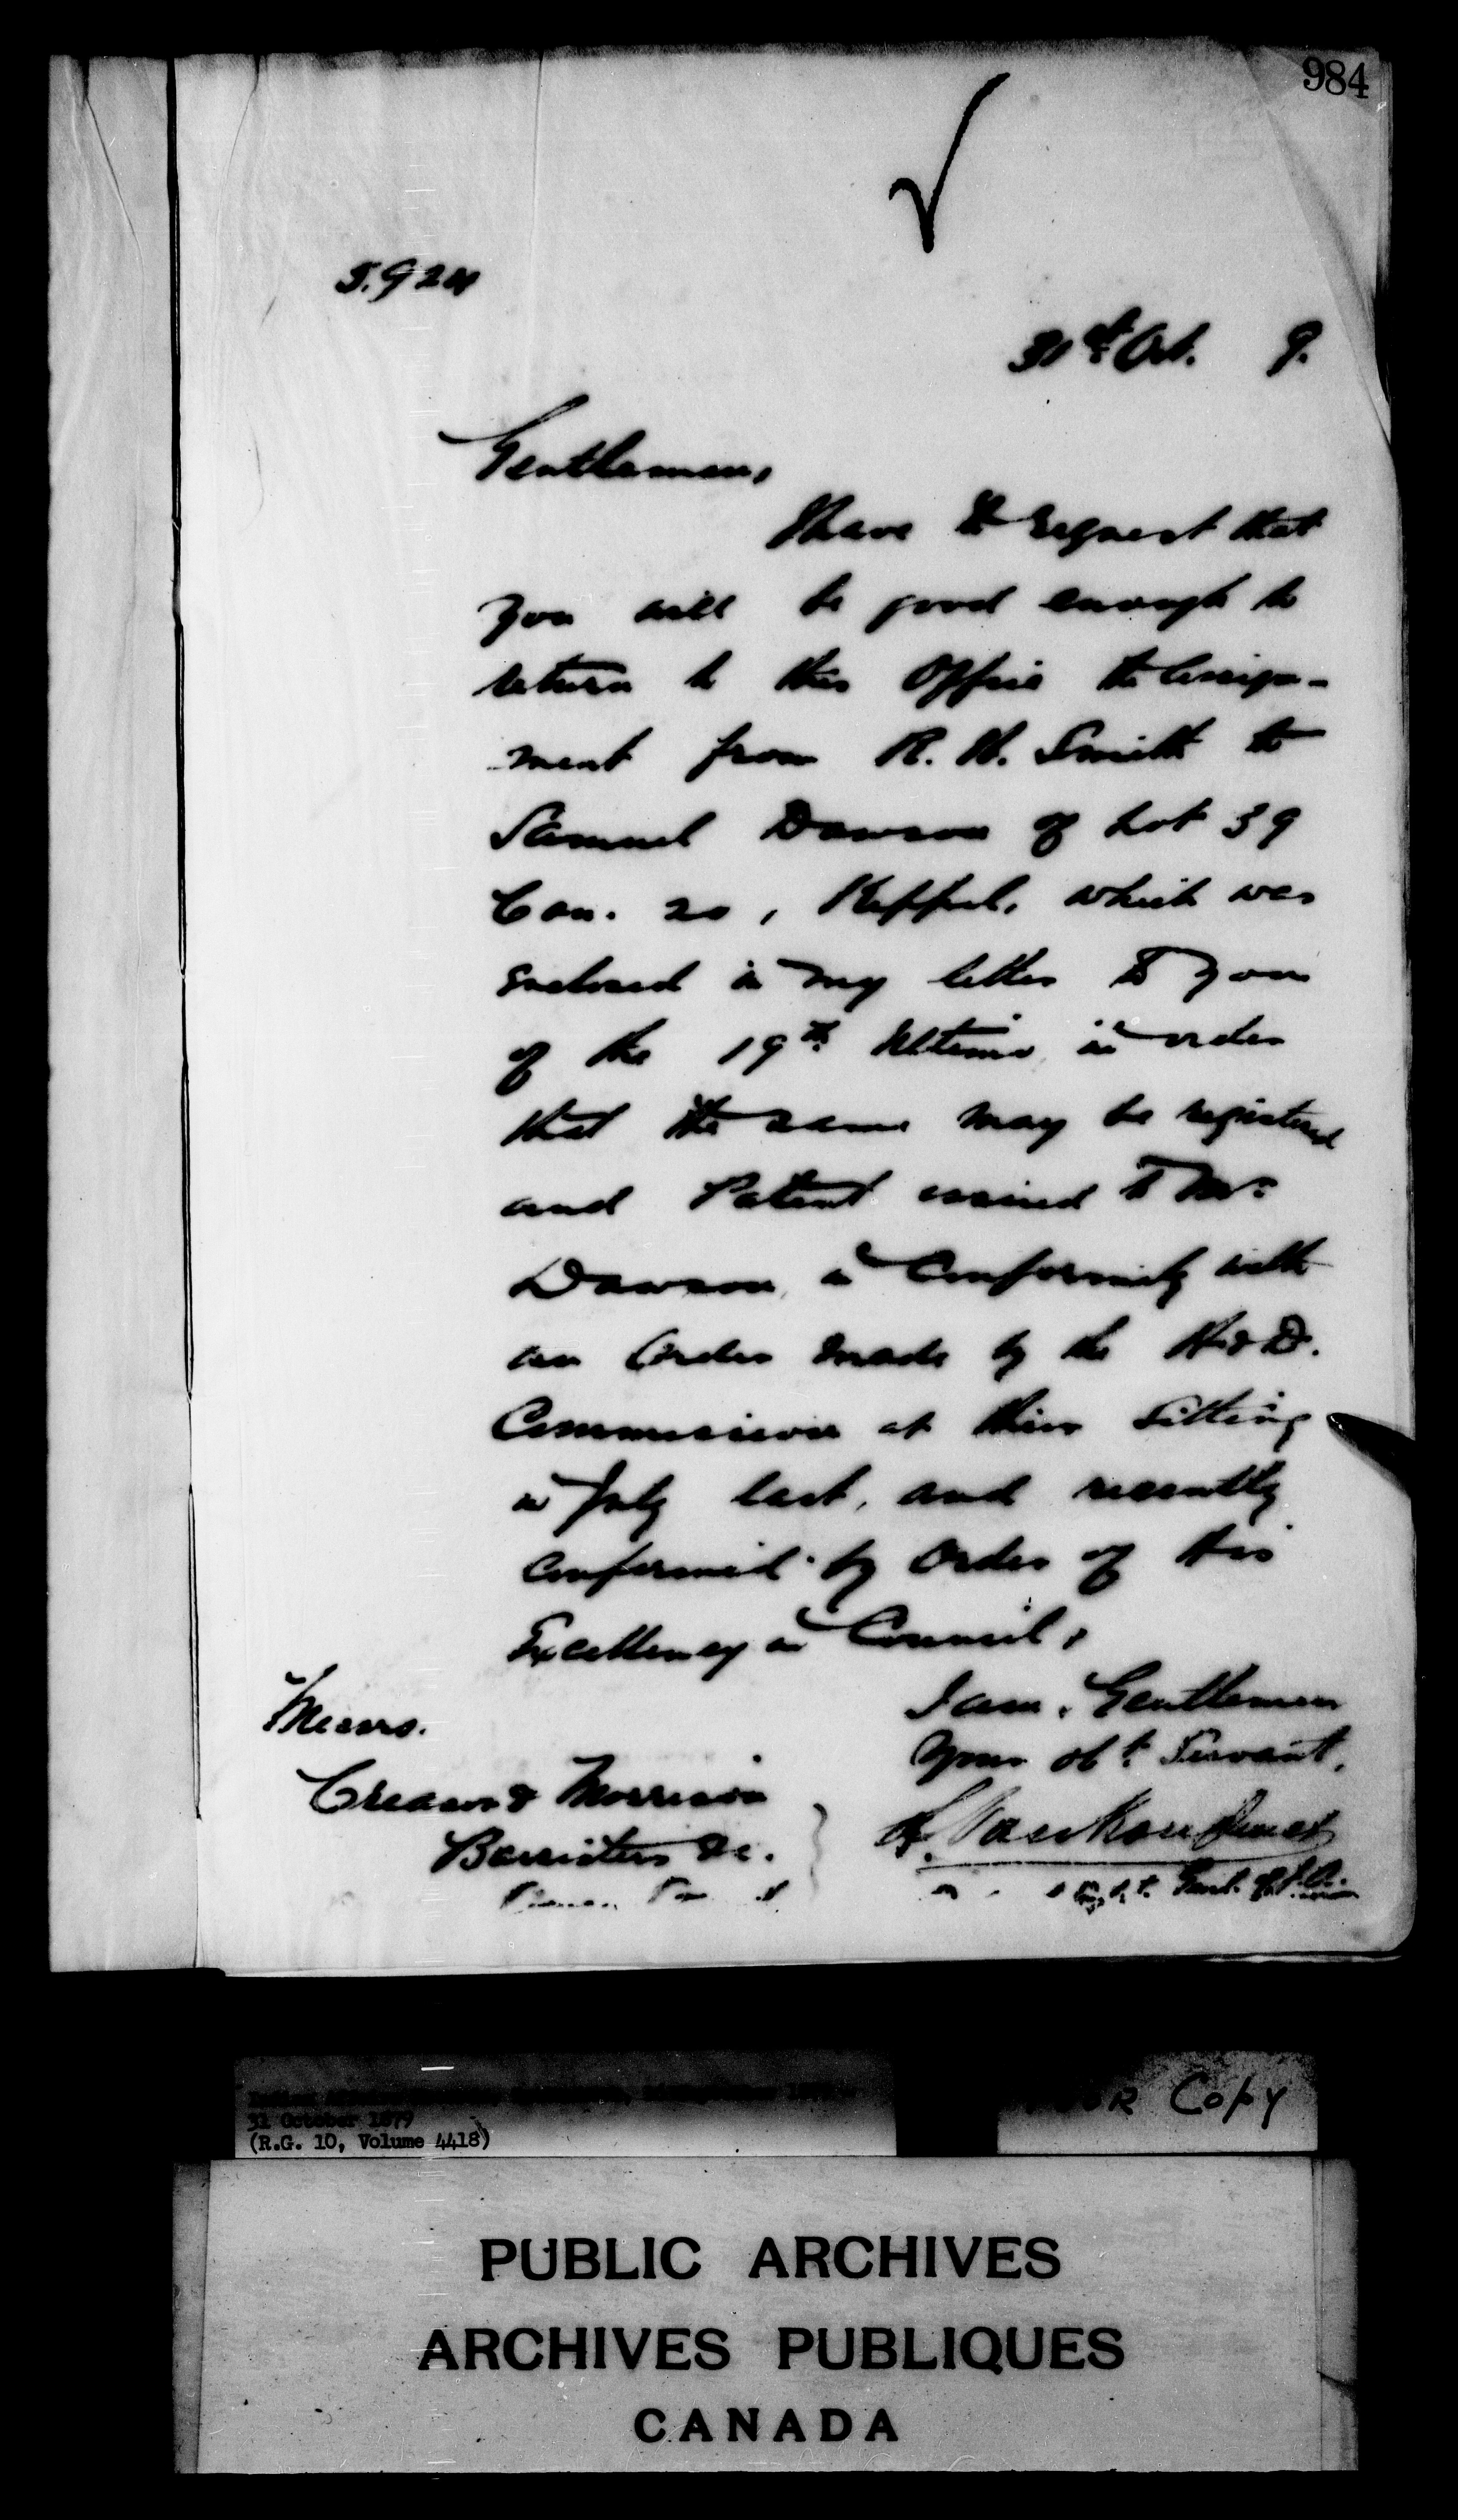 984
5.924
31st Oct. 9.
Gentlemen,
I have to request that
you will be good enough to
return to this Office the Assign-
ment from R. H. Smith to
Samuel Dawson of Lot 39
Con. 20, Keppel, which was
enclosed in my letter to you
of the 19th Ultimo, in order
that the same may be registered
and Patent issued to Mr.
Dawson, in Conformity with
an Order made by the H & D.
Commission at their Sitting
in July last, and recently
confirmed by Order of His
Excellency in Council.
I am, Gentlemen
Your obt. Servant,
L. Vankoughnet
Supt. Genl. of I.A.
Messrs.
Creasor & Morrison
Barristers &c.
31 October 1879
(R.G. 10, Volume 4418)
Copy
PUBLIC ARCHIVES
ARCHIVES PUBLIQUES
CANADA